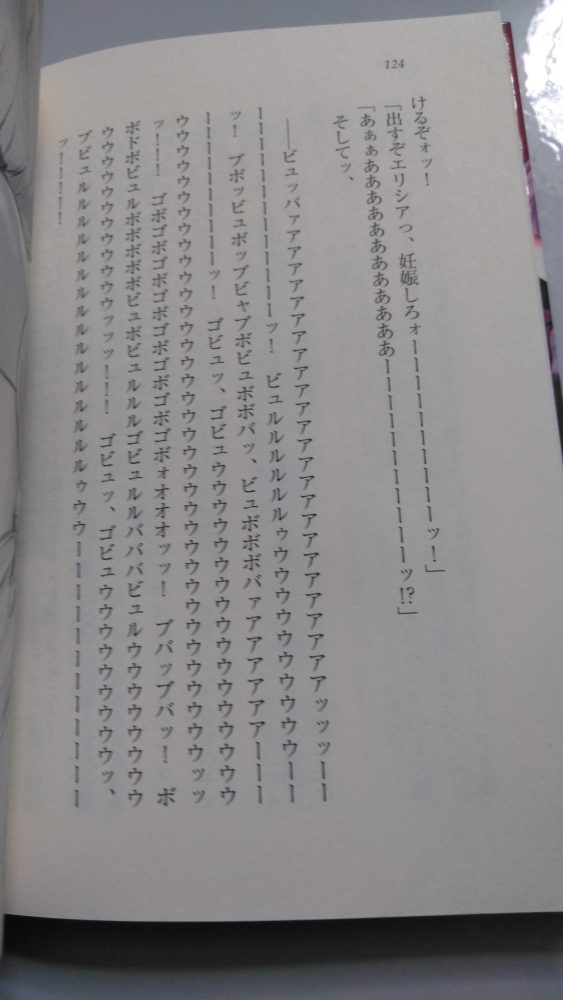 124
けるぞォッ！
「出すぞエリシアっ、妊娠しろォーーーーーーーーーーッ！」
「あぁぁあああああああああああーーーーーーーーーーッ!?」
そしてッ、
――ビュッバァアアアアアアアアアアアアアアアアアアアアアアアアアアアッッッーー
ーーーーーーーーーーーーッ！　ビュルルルルルルゥウウウウウウウウウウウウウーー
ッ！　ブボッビュボッブビャブボビュボボバッ、ビュボボボバァアアアアアアアーーー
ーーーーーーーーーッ！　ゴビュッ、ゴビュウウウウウウウウウウウウウウウウウウウ
ウウウウウウウウウウウウウウウウウウウウウウウウウウウウウウウウウウウウウッッ
ッ！！！　ゴボゴボゴボゴボゴボゴボゴボゴボォオオオッッ！　ブバッブバッ！　ボ
ボドボビュルボボボボボビュボビュルルルゴビュルルバババビュルウウウウウウウウ
ウウウウウウウウウウウウウッッッ！！！　ゴビュッ、ゴビュウウウウウウウウウウッ、
ブビュルルルルルルルルルルルルルルルルルルルルゥウウーーーーーーーーーーーーー
ッ！！！！！